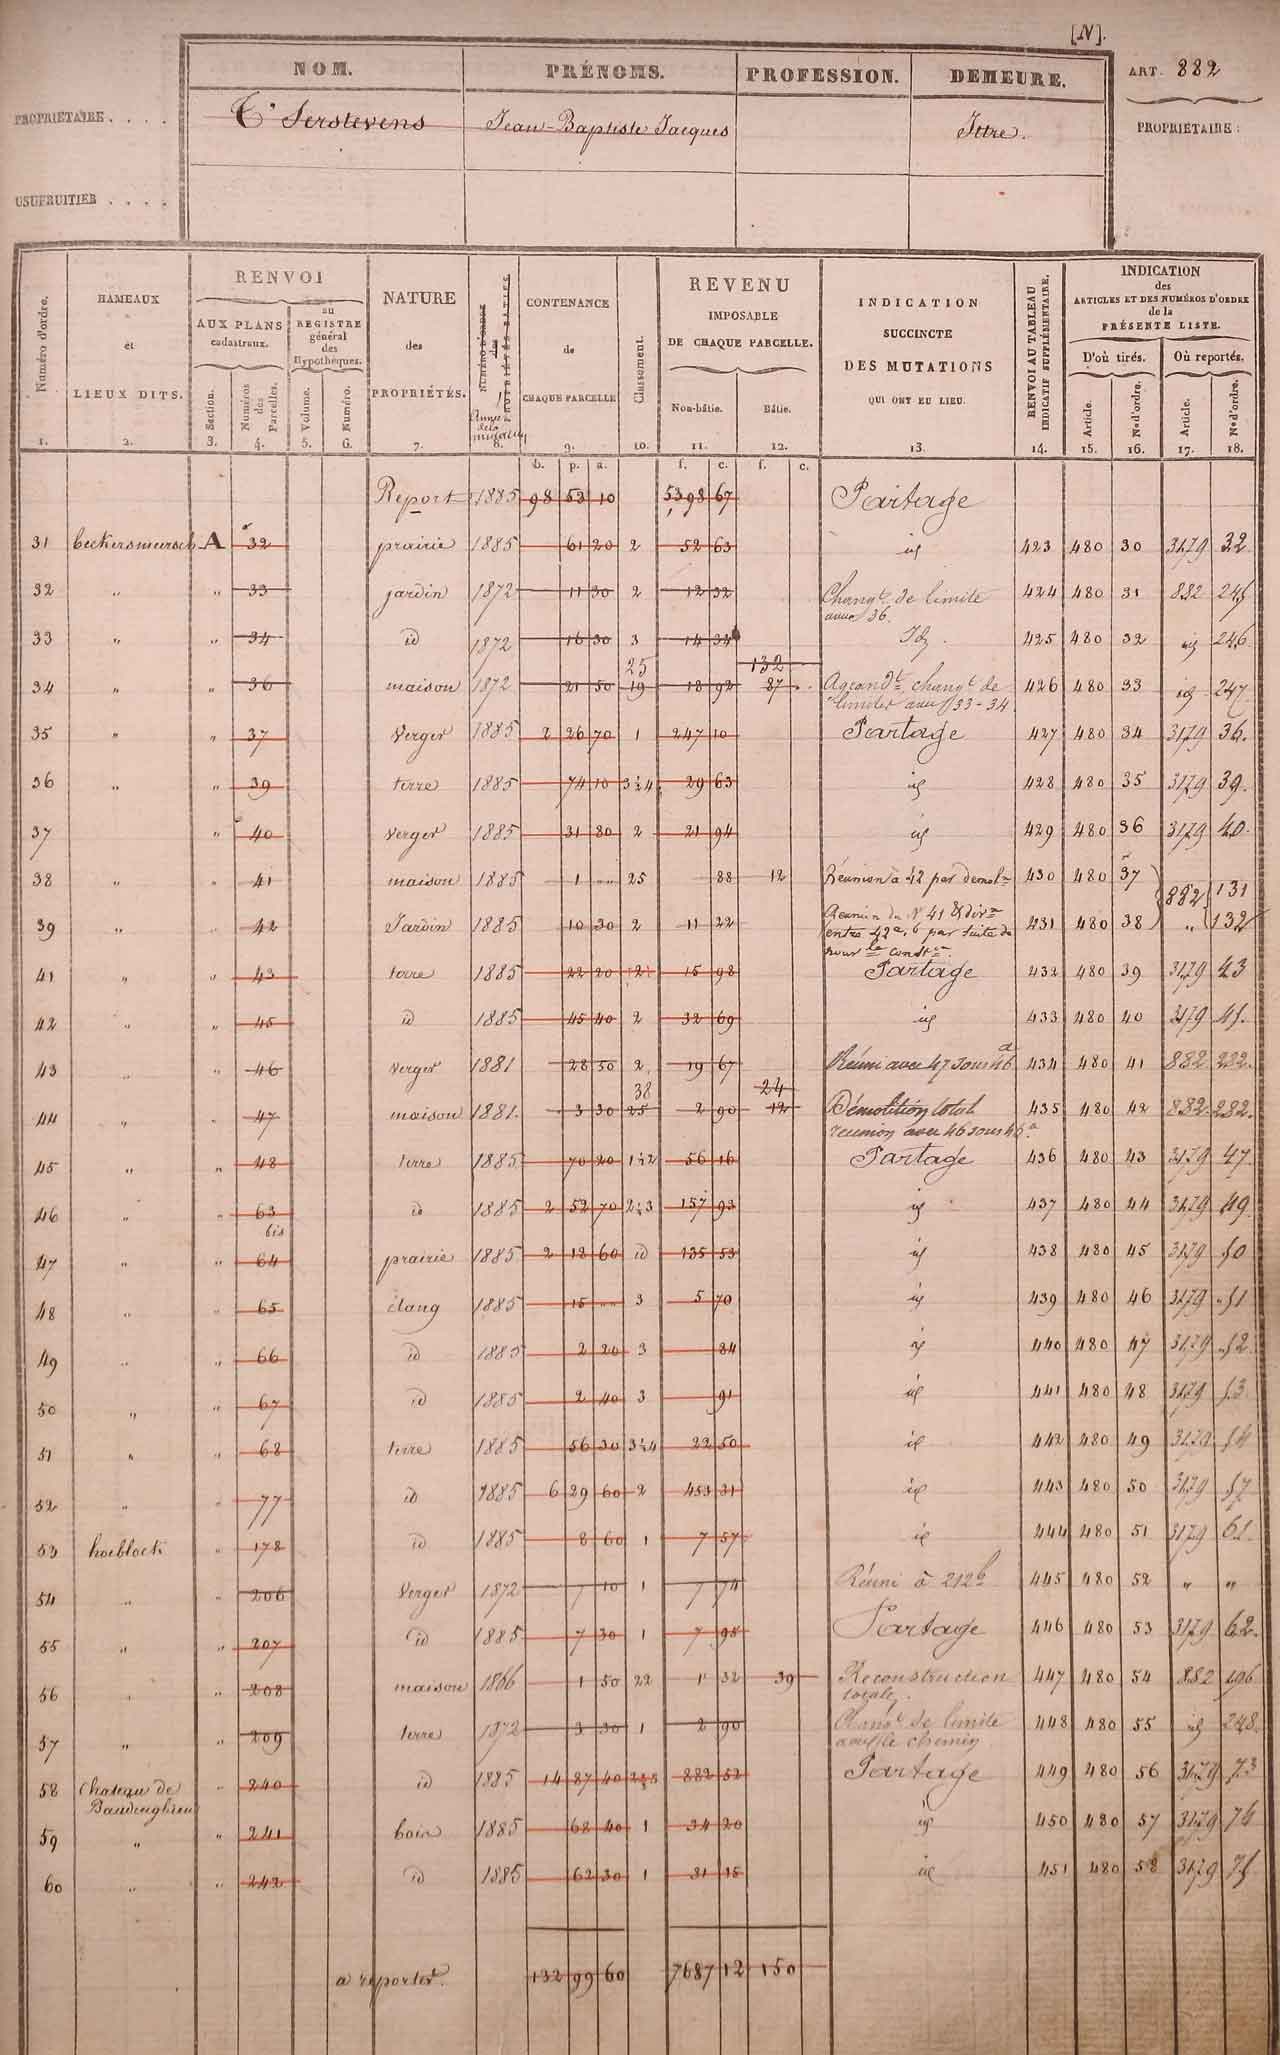 [N].
NOM. PRÉNOMS. PROFESSION. DEMEURE. ART. 882
PROPRIÉTAIRE . . . . T' Serstevens Jean-Baptiste Jacques Ittre. PROPRIÉTAIRE :
USUFRUITIER . . . .
Numéro d'ordre. 1.
HAMEAUX et LIEUX DITS. 2.
RENVOI
AUX PLANS cadastraux. Section. 3. Numéros des Parcelles. 4.
au REGISTRE général des Hypothèques. Volume. 5. Numéro. 6.
NATURE des PROPRIÉTÉS. 7.
NUMÉRO D'ORDRE des PROPRIÉTÉS BATIES Année de la mutation 8.
CONTENANCE de CHAQUE PARCELLE 9.
Classement. 10.
REVENU IMPOSABLE DE CHAQUE PARCELLE.
Non-bâtie. 11. Bâtie. 12.
INDICATION SUCCINCTE DES MUTATIONS QUI ONT EU LIEU. 13.
RENVOI AU TABLEAU INDICATIF SUPPLÉMENTAIRE. 14.
INDICATION des ARTICLES ET DES NUMÉROS D'ORDRE de la PRÉSENTE LISTE.
D'où tirés. Où reportés.
Article. 15. N.os d'ordre. 16. Article. 17. N.os d'ordre. 18.
b. p. a. f. c. f. c.
Report 1885 98 53 10 5398 67 Partage
31 beckersmeersch A 32 prairie 1885 61 20 2 52 63 id 423 480 30 3179 32
32 " " 33 jardin 1872 11 30 2 12 32 Changt de limite avec 36. 424 480 31 882 245
33 " " 34 id 1872 16 30 3 14 34 Id. 425 480 32 id 246
25 132
34 " " 36 maison 1872 21 50 19 18 92 87 Agrandt changt de limites avec 33-34 426 480 33 id 247
35 " " 37 verger 1885 2 26 70 1 247 10 Partage 427 480 34 3179 36.
36 " " 39 terre 1885 74 10 3 à 4 29 63 id 428 480 35 3179 39.
37 " 40 verger 1885 31 80 2 21 94 id 429 480 36 3179 40.
38 " " 41 maison 1885 1 " 25 88 12 Réunion à 42 par demolon 430 480 37 882 131
39 " " 42 Jardin 1885 10 30 2 11 22 Reunion du No 41 & divon entre 42a, b par suite de nour le constr 431 480 38 " 132
41 " " 43 terre 1885 22 20 2 15 98 Partage 432 480 39 3179 43
42 " " 45 id 1885 45 40 2 32 69 id 433 480 40 3179 45.
43 " " 46 verger 1881 28 50 2 19 67 Réuni avec 47 sous 46a 434 480 41 882 282.
38 24
44 " " 47 maison 1881. 3 30 25 2 90 12 Démolition total reunion avec 46 sous 46a 435 480 42 882 282.
45 " " 48 terre 1885 70 20 1 à 2 56 16 Partage 436 480 43 3179 47
46 " " 63 bis id 1885 2 52 70 2 à 3 157 93 id 437 480 44 3179 49
47 " " 64 prairie 1885 2 18 60 id 135 53 id 438 480 45 3179 50
48 " " 65 étang 1885 15 " 3 5 70 id 439 480 46 3179 51
49 " " 66 id 1885 2 20 3 84 id 440 480 47 3179 52
50 " " 67 id 1885 2 40 3 91 id 441 480 48 3179 53
51 " " 68 terre 1885 56 30 3 à 4 22 50 id 442 480 49 3179 54
52 " " 77 id 1885 6 29 60 2 453 31 id 443 480 50 3179 57
53 hoeblock " 178 id 1885 8 60 1 7 57 id 444 480 51 3179 61.
54 " " 206 verger 1872 7 10 1 7 74 Réuni à 212b 445 480 52 " "
55 " " 207 id 1885 7 30 1 7 95 Partage 446 480 53 3179 62.
56 " " 208 maison 1866 1 50 22 1 32 39 Reconstruction totale. 447 480 54 882 196
57 " " 209 terre 1872 3 30 1 2 90 Changt de limite avec le chemin 448 480 55 id 248.
58 Chateau de Baudenghien " 240 id 1885 14 87 40 882 52 Partage 449 480 56 3179 73
59 " " 241 bois 1885 68 40 1 34 20 id 450 480 57 3179 74
60 " " 242 id 1885 62 30 1 31 15 id 451 480 58 3179 75
a reporter. 132 99 60 7687 12 150